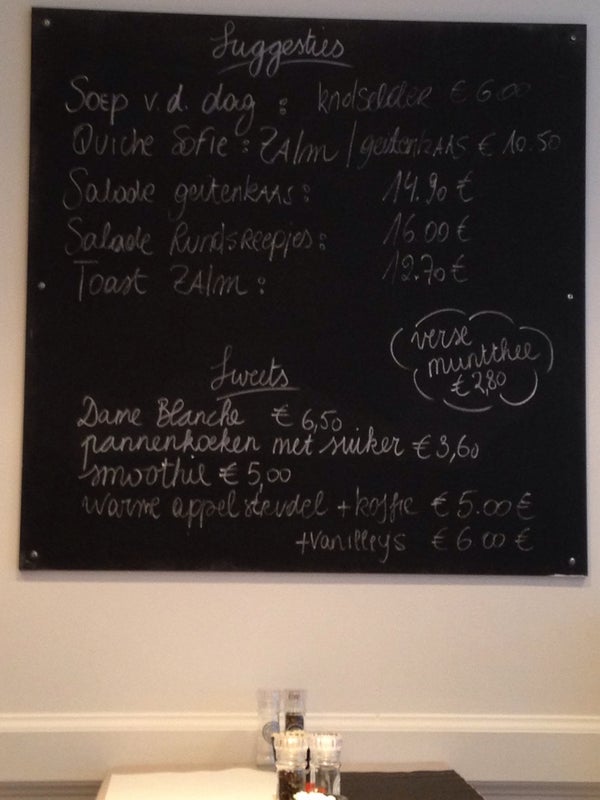 Suggesties
Soep v.d. dag : knolselder € 6.00
Quiche Sofie : ZAlm / geitenkAAS € 10.50
Salade geitenkAAS : 14.90 €
Salade Rundsreepjes : 16.00 €
Toast ZAlm : 12.70 €
verse
muntthee
€ 2,80
Sweets
Dame Blanche € 6,50
pannenkoeken met suiker € 3,60
smoothie € 5,00
warme appelstrudel + koffie € 5.00 €
+vanilleijs € 6 00 €